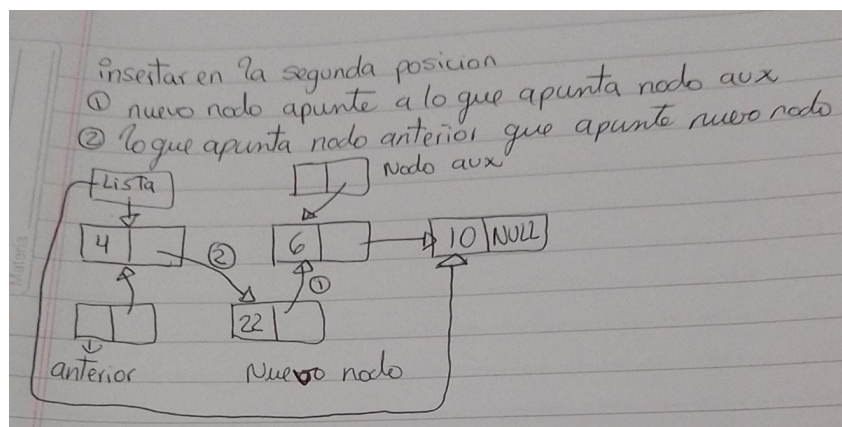 insertar en la segunda posicion
① nuevo nodo apunte a lo que apunta nodo aux
② lo que apunta nodo anterior que apunte nuevo nodo
Lista
Nodo aux
4
②
6
10 NULL
①
22
anterior
Nuevo nodo
Materia